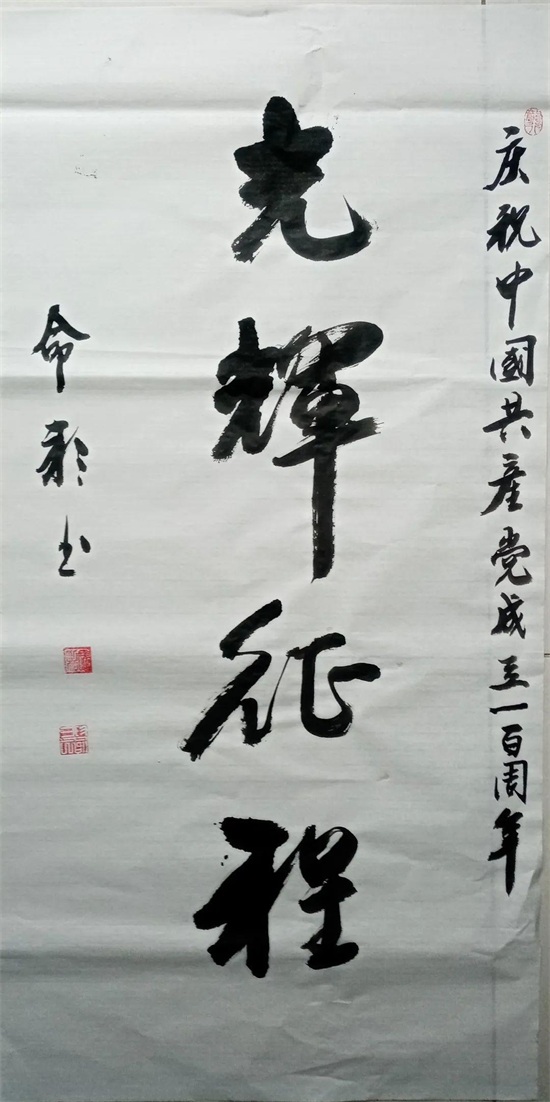 庆祝中國共産党成立一百周年
光輝征程
命彩书